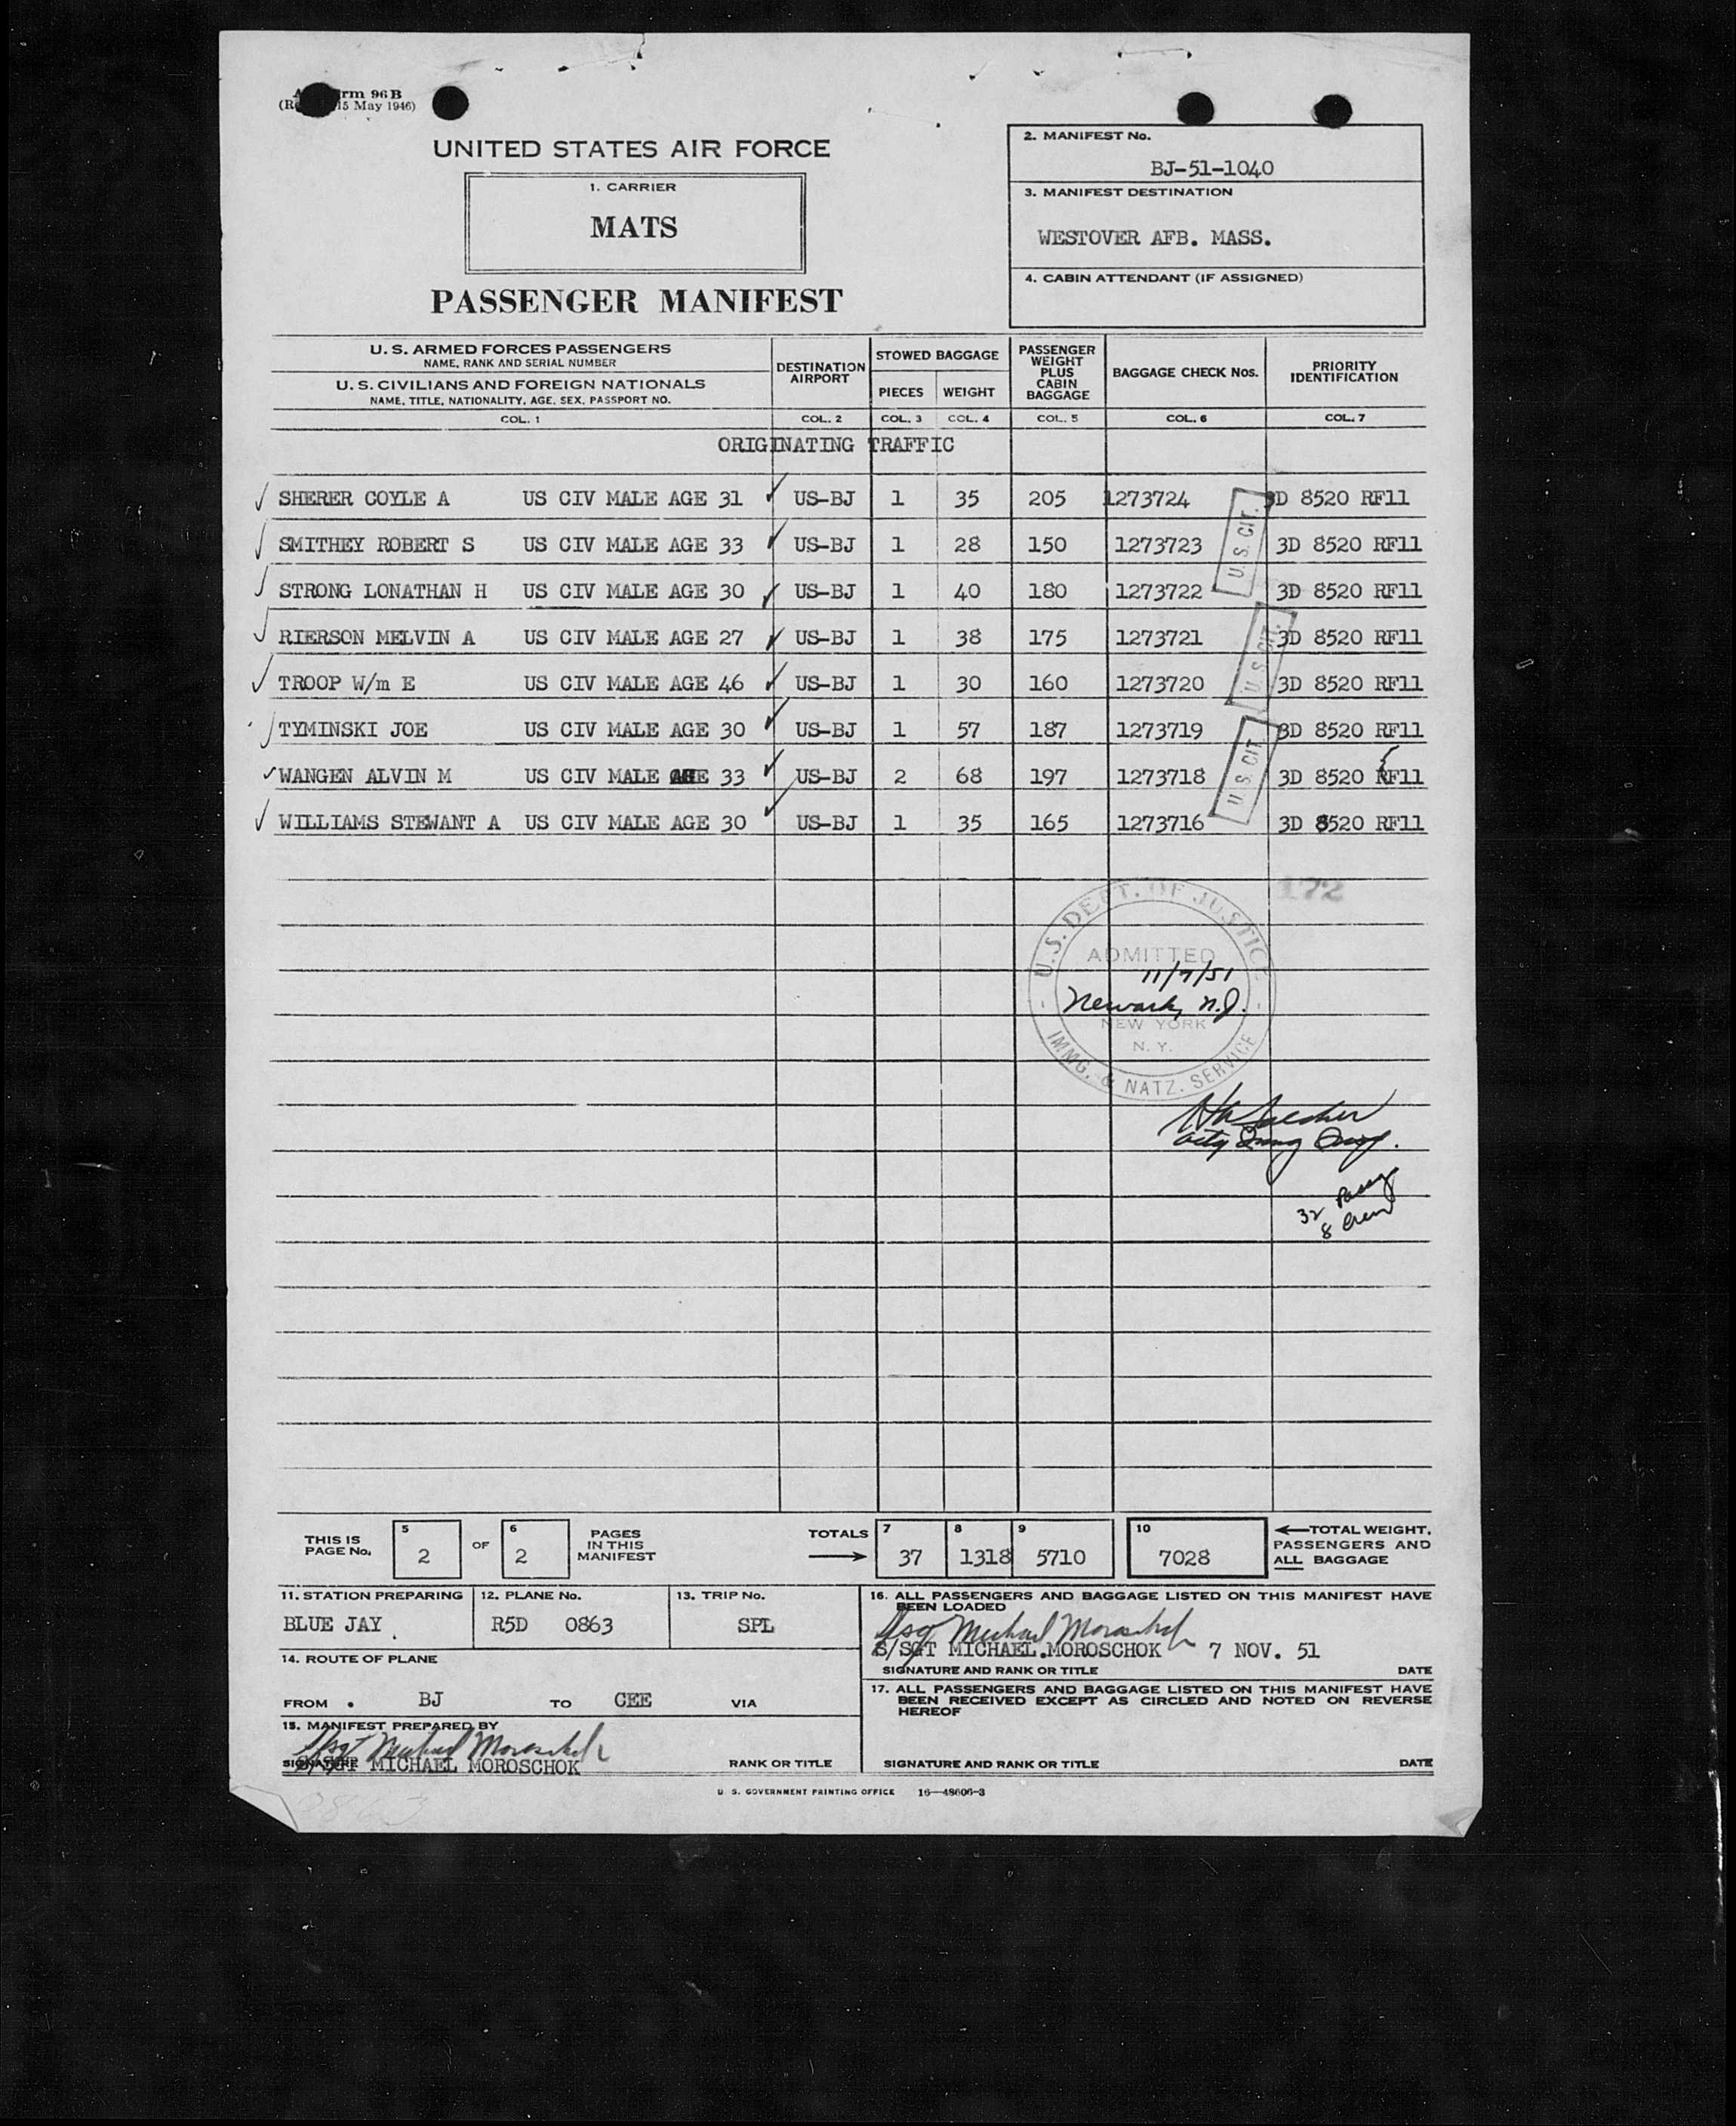 rm 96 B
15 May 1946)
UNITED STATES AIR FORCE
1. CARRIER
MATS
PASSENGER MANIFEST
2. MANIFEST No.
BJ-51-1040
3. MANIFEST DESTINATION
WESTOVER AFB. MASS.
4. CABIN ATTENDANT (IF ASSIGNED)
U. S. ARMED FORCES PASSENGERS
NAME, RANK AND SERIAL NUMBER
U. S. CIVILIANS AND FOREIGN NATIONALS
NAME, TITLE, NATIONALITY, AGE, SEX, PASSPORT NO.
DESTINATION AIRPORT
STOWED BAGGAGE
PIECES WEIGHT
PASSENGER WEIGHT PLUS CABIN BAGGAGE
BAGGAGE CHECK Nos.
PRIORITY IDENTIFICATION
COL. 1 COL. 2 COL. 3 COL. 4 COL. 5 COL. 6 COL. 7
ORIGINATING TRAFFIC
SHERER COYLE A US CIV MALE AGE 31 US-BJ 1 35 205 1273724 3D 8520 RF11
SMITHEY ROBERT S US CIV MALE AGE 33 US-BJ 1 28 150 1273723 3D 8520 RF11
STRONG LONATHAN H US CIV MALE AGE 30 US-BJ 1 40 180 1273722 3D 8520 RF11
RIERSON MELVIN A US CIV MALE AGE 27 US-BJ 1 38 175 1273721 3D 8520 RF11
TROOP W/m E US CIV MALE AGE 46 US-BJ 1 30 160 1273720 3D 8520 RF11
TYMINSKI JOE US CIV MALE AGE 30 US-BJ 1 57 187 1273719 3D 8520 RF11
WANGEN ALVIN M US CIV MALE AGE 33 US-BJ 2 68 197 1273718 3D 8520 RF11
WILLIAMS STEWANT A US CIV MALE AGE 30 US-BJ 1 35 165 1273716 3D 8520 RF11
U. S. CIT.
U. S. CIT.
U. S. CIT.
172
U.S. DEPT. OF JUSTICE
ADMITTED
11/7/51
Newark, N.J.
NEW YORK
N. Y.
IMMG. & NATZ. SERVICE
32 Passg
8 Crew
THIS IS PAGE No. 5 2 OF 6 2 PAGES IN THIS MANIFEST
TOTALS 7 37 8 1318 9 5710 10 7028
TOTAL WEIGHT, PASSENGERS AND ALL BAGGAGE
11. STATION PREPARING
BLUE JAY
12. PLANE No.
R5D 0863
13. TRIP No.
SPL
14. ROUTE OF PLANE
FROM BJ TO CEE VIA
15. MANIFEST PREPARED BY
S/Sgt Michael Moroschok
S/SGT MICHAEL MOROSCHOK
SIGNATURE RANK OR TITLE
16. ALL PASSENGERS AND BAGGAGE LISTED ON THIS MANIFEST HAVE
BEEN LOADED
S/Sgt Michael Moroschok
S/SGT MICHAEL MOROSCHOK 7 NOV. 51
SIGNATURE AND RANK OR TITLE DATE
17. ALL PASSENGERS AND BAGGAGE LISTED ON THIS MANIFEST HAVE
BEEN RECEIVED EXCEPT AS CIRCLED AND NOTED ON REVERSE
HEREOF
SIGNATURE AND RANK OR TITLE DATE
U. S. GOVERNMENT PRINTING OFFICE 16—48606-3